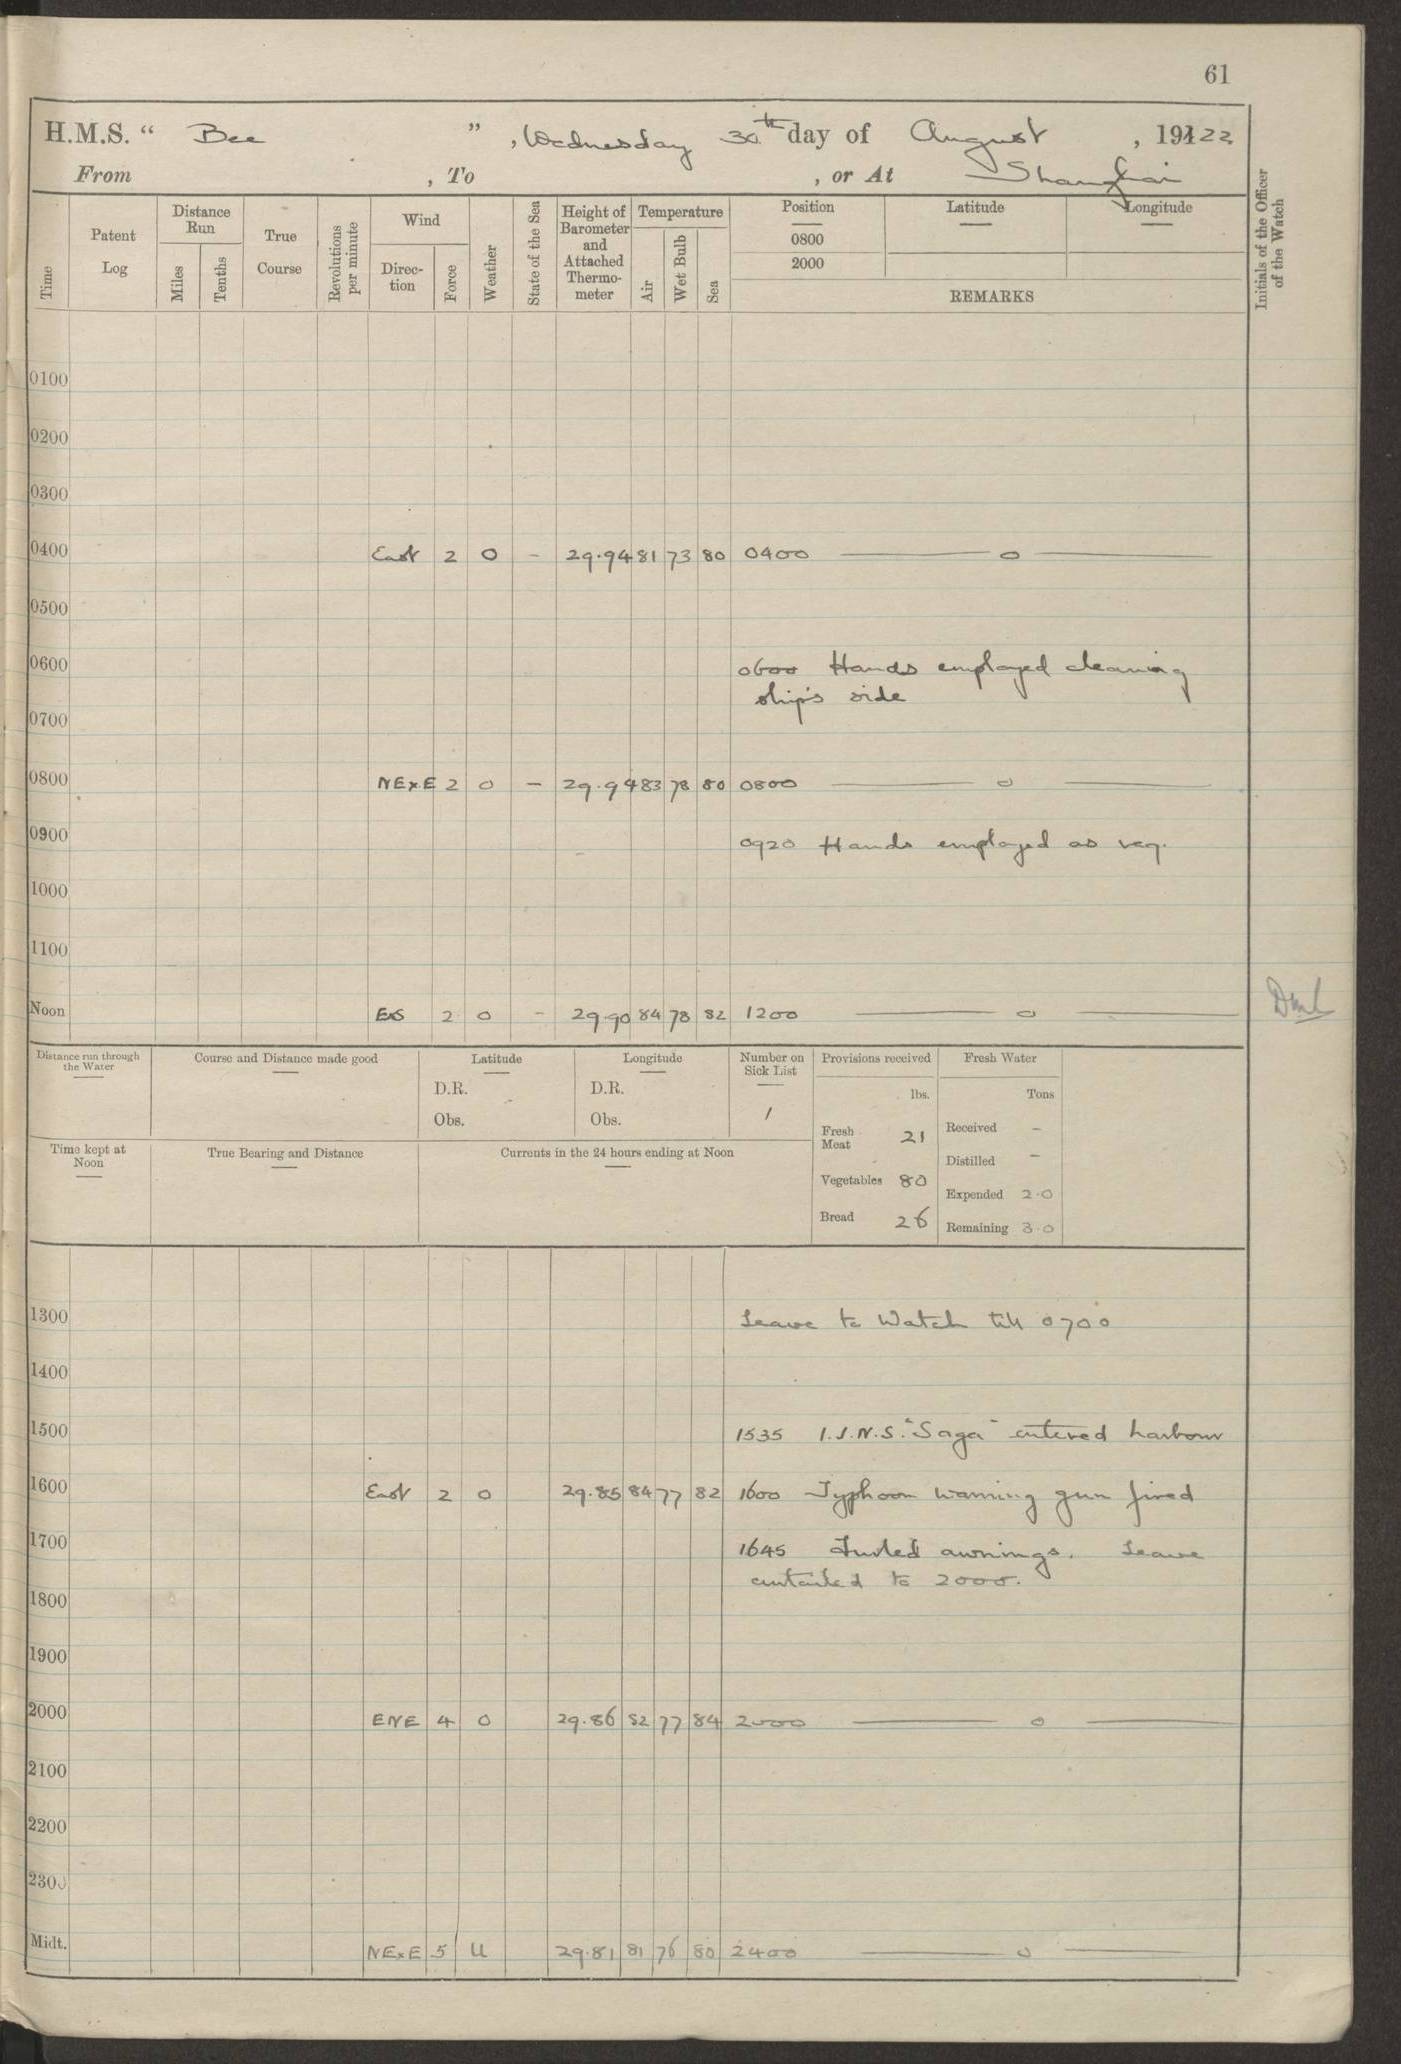 61
H.M.S. “ Bee ” , Wednesday 30th day of August , 19122
From , To , or At Shanghai
Time
Patent Log
Distance Run
Miles
Tenths
True Course
Revolutions per minute
Wind
Direction
Force
Weather
State of the Sea
Height of Barometer and Attached Thermometer
Temperature
Air
Wet Bulb
Sea
Position
0800
2000
Latitude
Longitude
REMARKS
Initials of the Officer of the Watch
0100
0200
0300
0400 East 2 O - 29.94 81 73 80 0400 — o —
0500
0600 0600 Hands employed cleaning
ship's side
0700
0800 NExE 2 O - 29.94 83 78 80 0800 — o —
0900 0920 Hands employed as req.
1000
1100
Noon ExS 2 O - 29.90 84 78 82 1200 — o —
Distance run through the Water
Course and Distance made good
Latitude
D.R.
Obs.
Longitude
D.R.
Obs.
Number on Sick List
1
Provisions received
lbs.
Fresh Meat 21
Vegetables 80
Bread 26
Fresh Water
Tons
Received -
Distilled -
Expended 2.0
Remaining 3.0
Time kept at Noon
True Bearing and Distance
Currents in the 24 hours ending at Noon
1300 Leave to Watch till 0700
1400
1500 1535 I.J.N.S. "Saga" entered harbour
1600 East 2 O 29.85 84 77 82 1600 Typhoon warning gun fired
1700 1645 Furled awnings. Leave
curtailed to 2000.
1800
1900
2000 ENE 4 O 29.86 82 77 84 2000 — o —
2100
2200
2300
Midt. NExE 5 U 29.81 81 76 80 2400 — o —